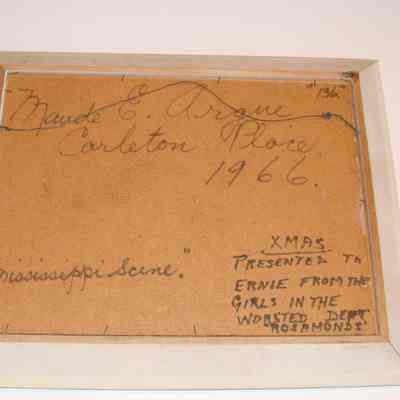 Maude E. Argue
"136"
Carleton Place
1966.
Mississippi Scene."
XMAS
PRESENTED TO
ERNIE FROM THE
GIRLS IN THE
WORSTED DEPT
"ROSAMONDS"